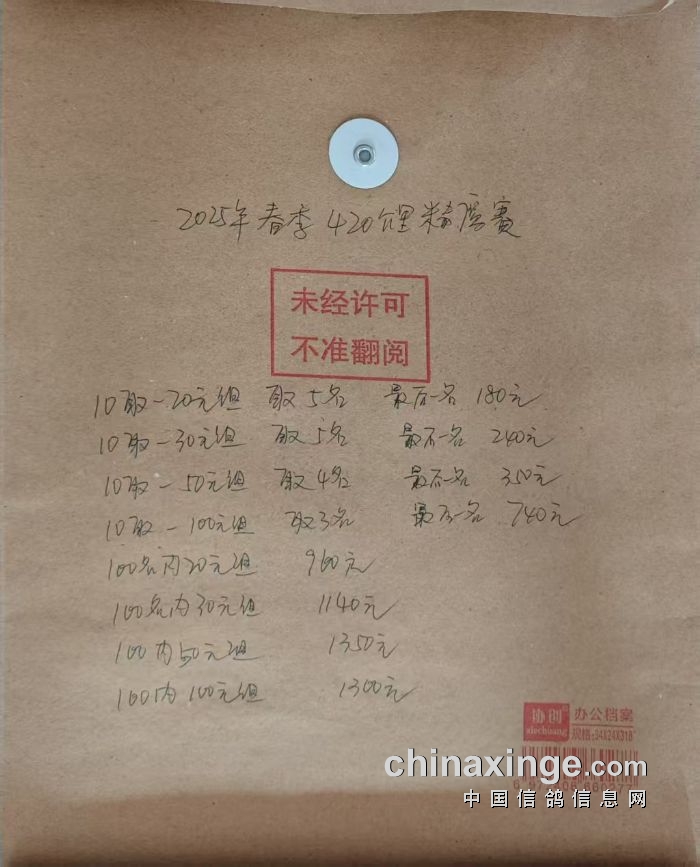 2025年春季420公里精度赛
未经许可
不准翻阅
10取一20元组 取5名 最后一名 180元
10取一30元组 取5名 最后一名 240元
10取一50元组 取4名 最后一名 350元
10取一100元组 取3名 最后一名 740元
100名内20元组 960元
100名内30元组 1140元
100内50元组 1350元
100内100元组 1300元
协创® 办公档案
xiechuang 规格:34X24X318
chinaxinge.com
中国信鸽信息网